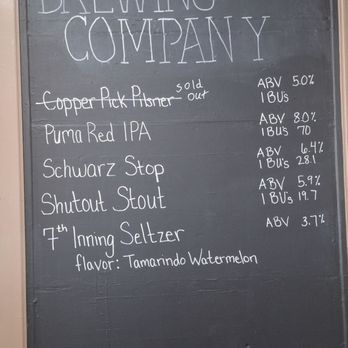 BREWING
COMPANY
Copper Pick Pilsner sold out ABV 5.0%
IBU's
Puma Red IPA ABV 8.0%
IBU's 70
Schwarz Stop ABV 6.4%
IBU's 28.1
Shutout Stout ABV 5.9%
IBU's 19.7
7th Inning Seltzer ABV 3.7%
flavor: Tamarindo Watermelon